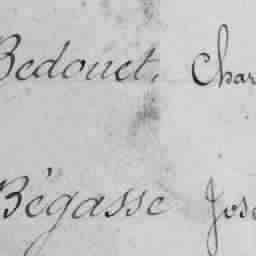 Bedouet, Char
Bégasse Jos